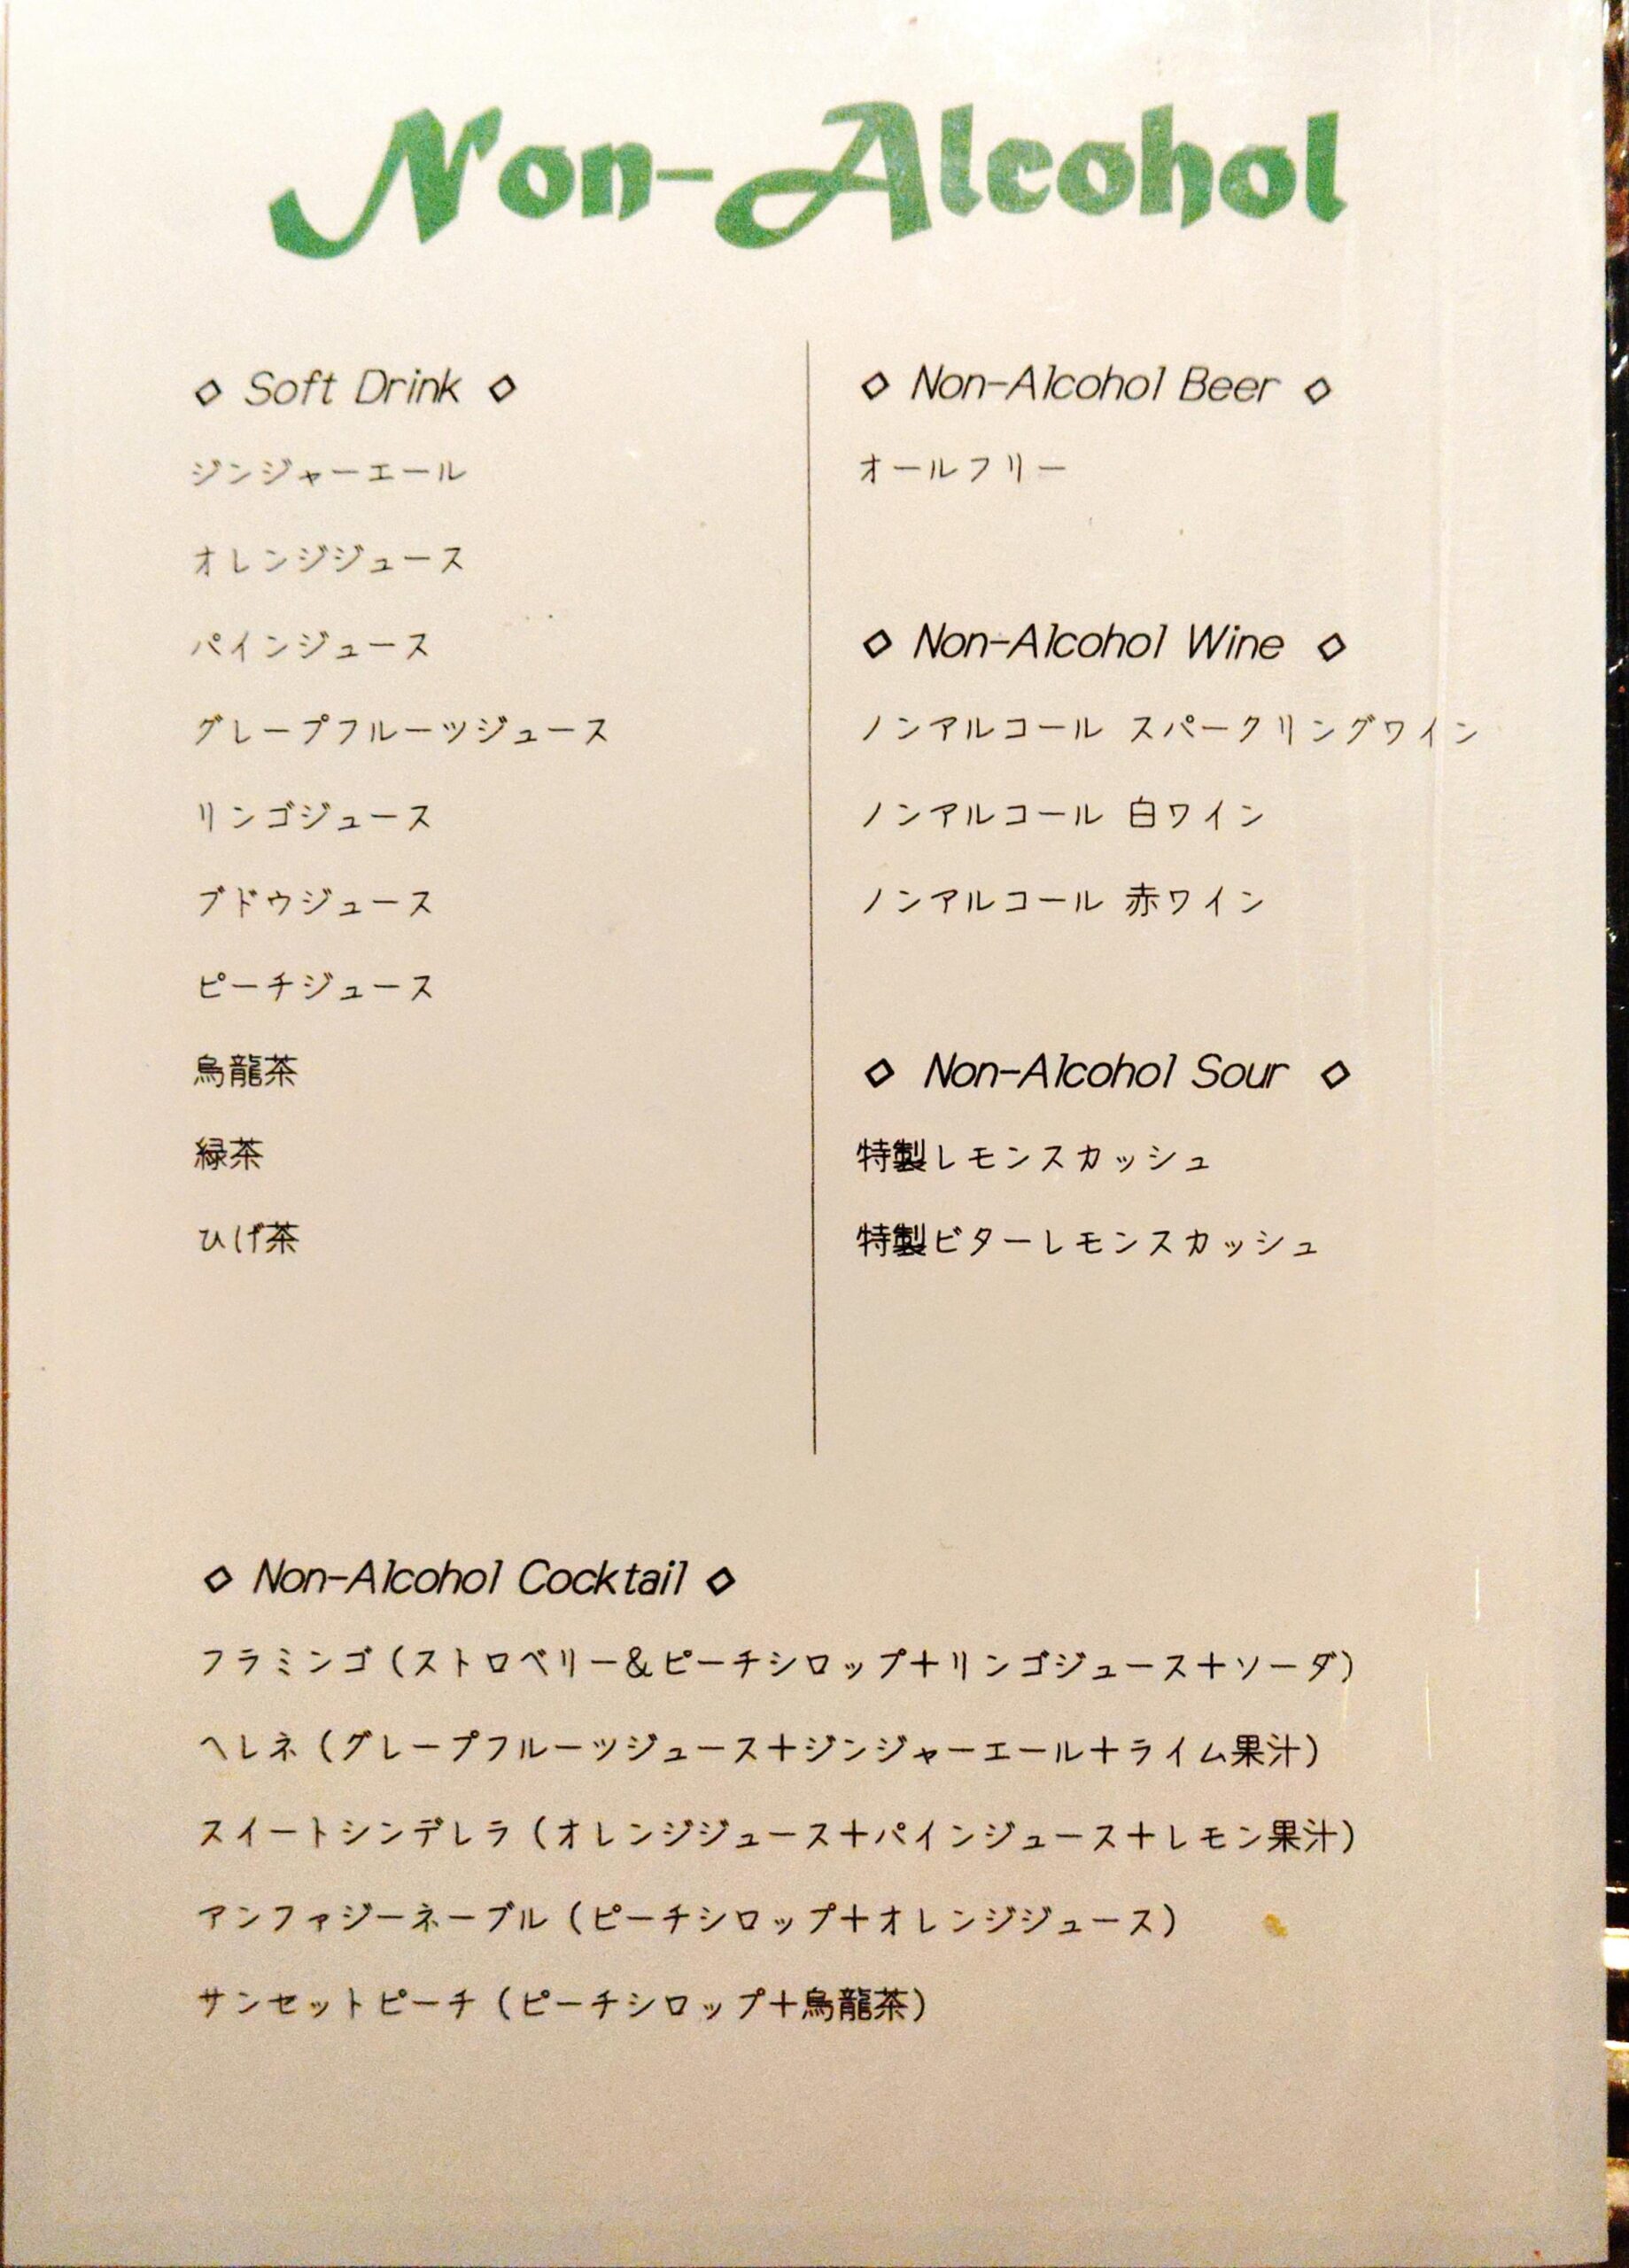 Non-Alcohol
◇ Soft Drink ◇
ジンジャーエール
オレンジジュース
パインジュース
グレープフルーツジュース
リンゴジュース
ブドウジュース
ピーチジュース
烏龍茶
緑茶
ひげ茶
◇ Non-Alcohol Beer ◇
オールフリー
◇ Non-Alcohol Wine ◇
ノンアルコール スパークリングワイン
ノンアルコール 白ワイン
ノンアルコール 赤ワイン
◇ Non-Alcohol Sour ◇
特製レモンスカッシュ
特製ビターレモンスカッシュ
◇ Non-Alcohol Cocktail ◇
フラミンゴ(ストロベリー&ピーチシロップ+リンゴジュース+ソーダ)
ヘレネ(グレープフルーツジュース+ジンジャーエール+ライム果汁)
スイートシンデレラ(オレンジジュース+パインジュース+レモン果汁)
アンファジーネーブル(ピーチシロップ+オレンジジュース)
サンセットピーチ(ピーチシロップ+烏龍茶)